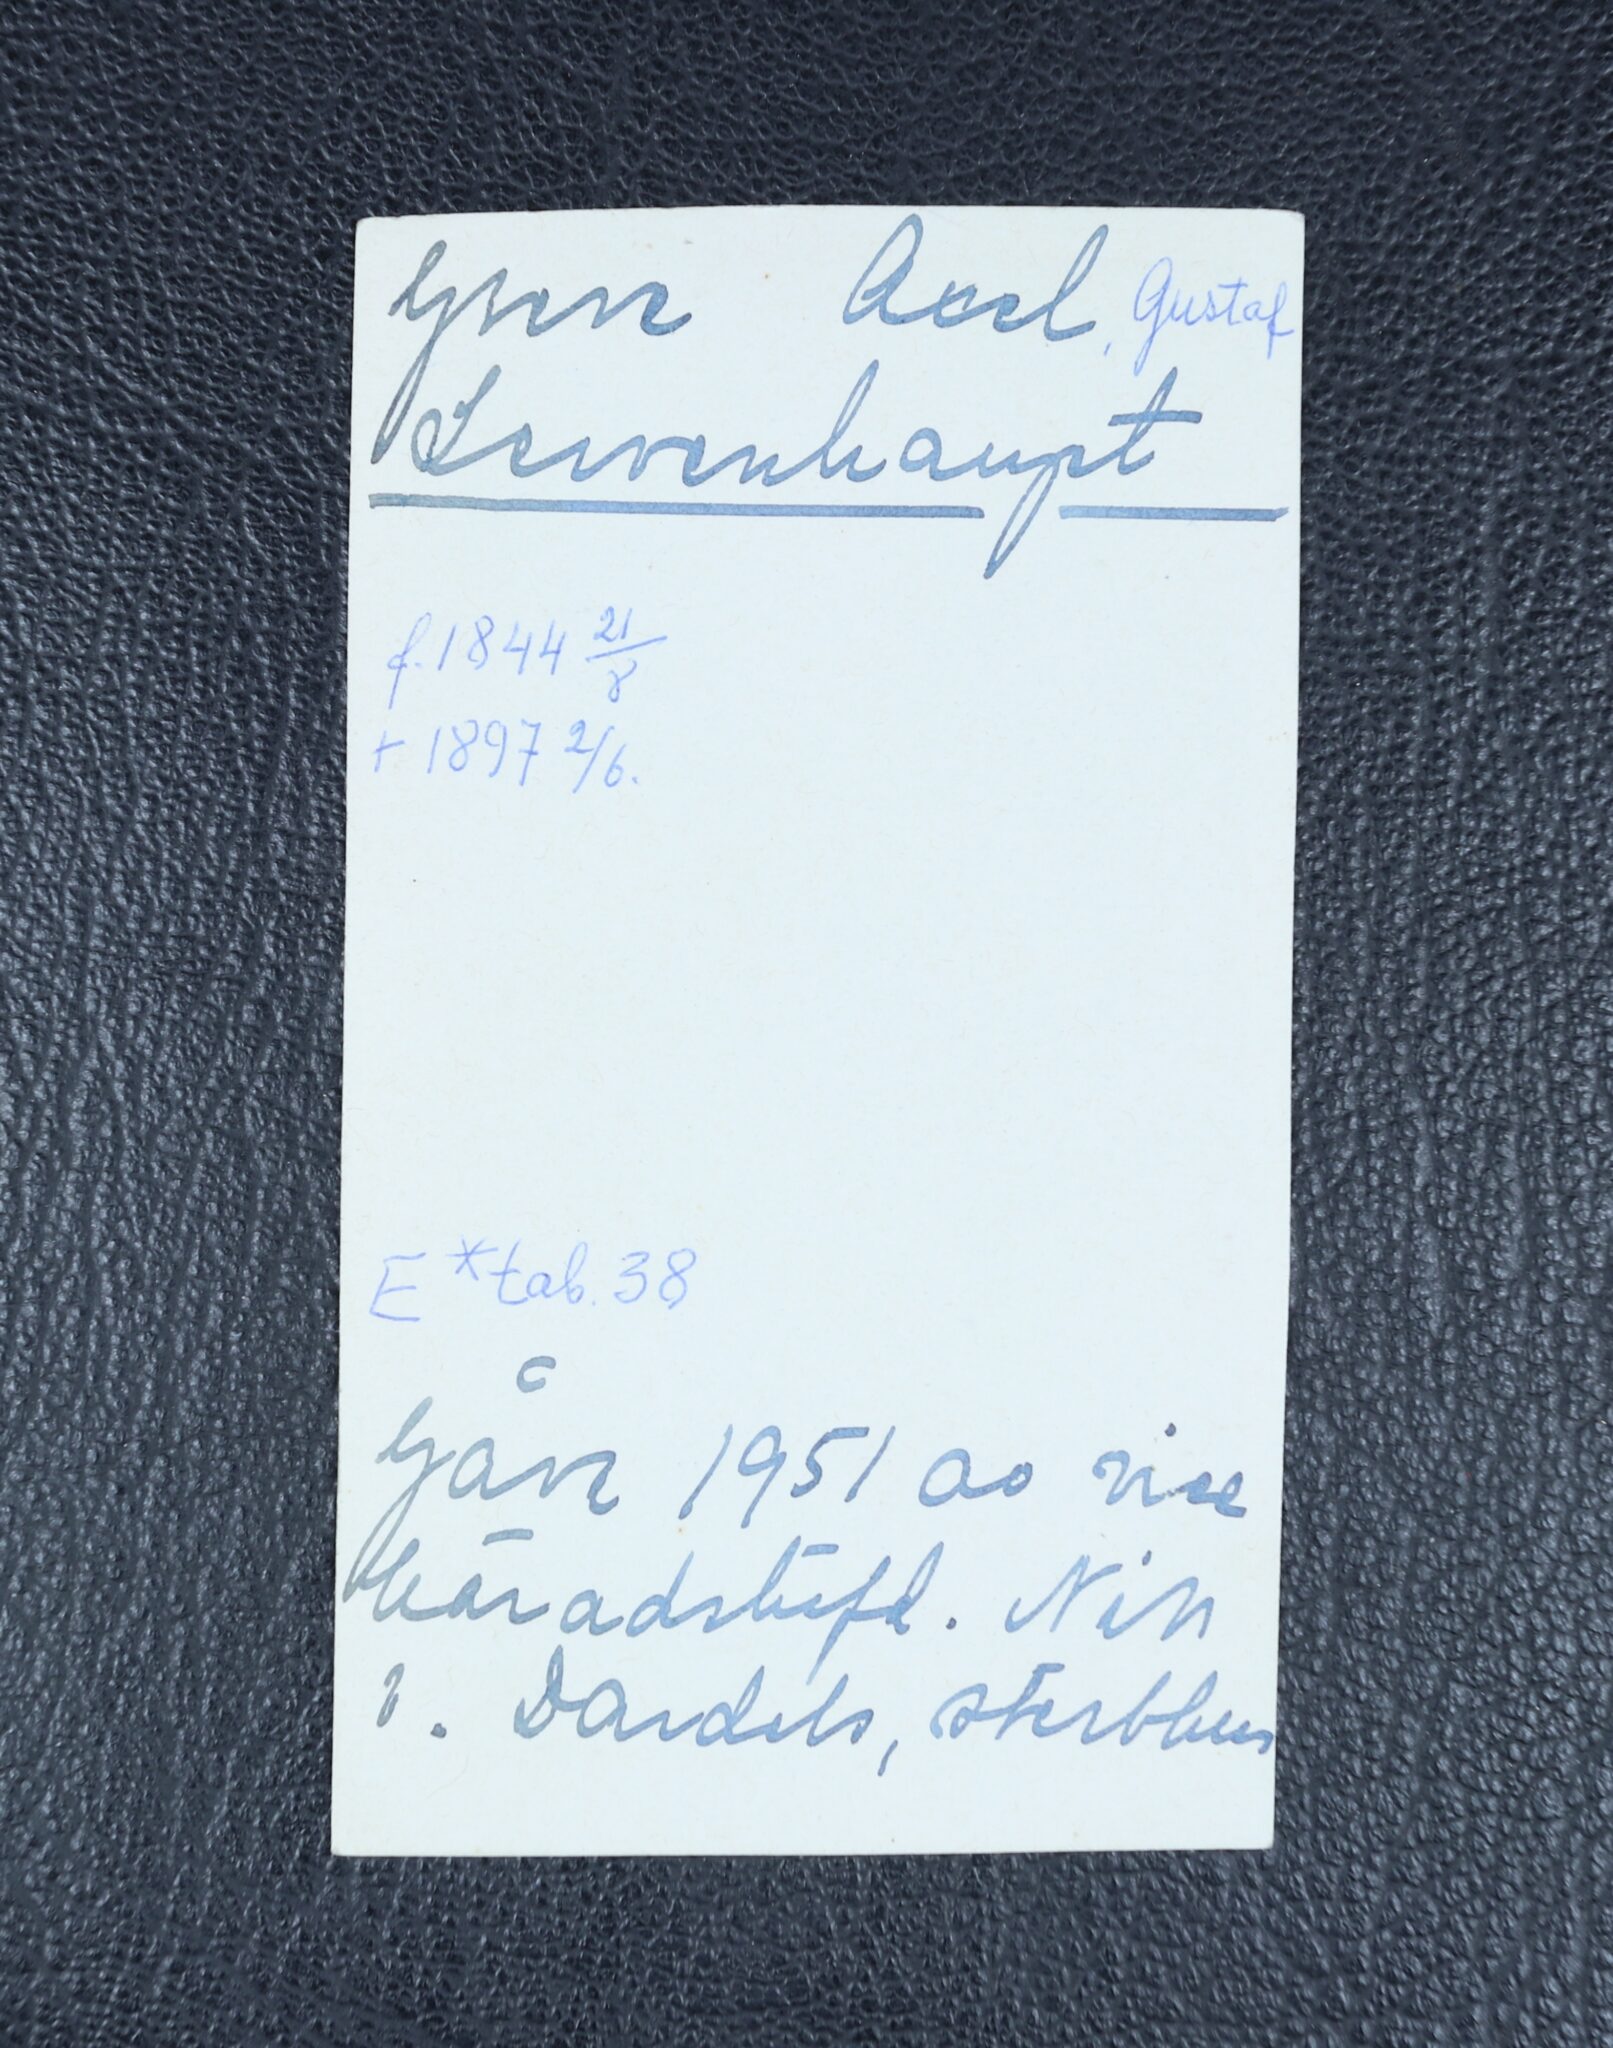 Greve Axel, Gustaf
Lewenhaupt
f. 1844 21/8
+ 1897 2/6.
E *tab. 38
Gåva 1951 av vice
häradshöfd. Nils
v. Dardels, sterbhus